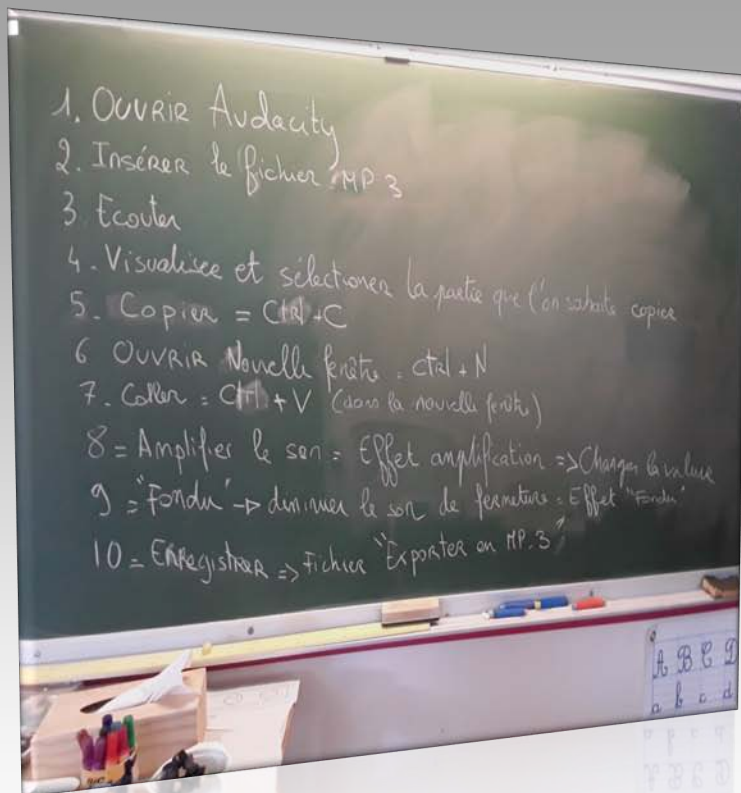 1. OUVRIR Audacity
2. Insérer le fichier .MP.3
3 Ecouter
4. Visualiser et sélectioner la partie que l'on sohaite copier
5. Copier = Ctrl + C
6 OUVRIR Nouvelle fenêtre = ctrl + N
7. Coller = Ctrl + V (dans la nouvelle fenêtre)
8 = Amplifier le son = Effet amplification => Changer la valeur
9 = "Fondu" -> diminuer le son de fermeture = Effet "Fondu"
10 = Enregistrer => Fichier "Exporter en MP.3"
A B C D
a b c d